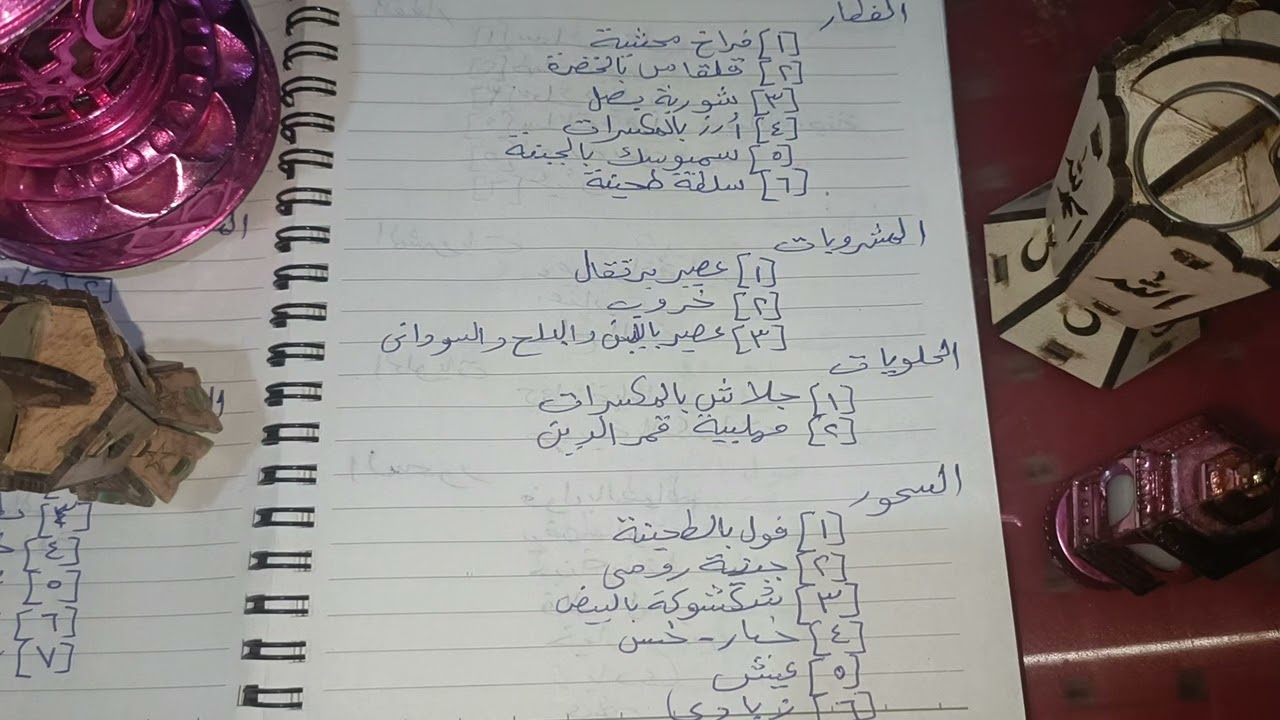 الفطار
[١] فراخ محشية
[٢] قلقاس بالخضرة
[٣] شوربة بصل
[٤] أرز بالمكسرات
[٥] سمبوسك بالجبنة
[٦] سلطة طحينة
المشروبات
[١] عصير برتقال
[٢] خروب
[٣] عصير باللبن والبلح والسودانى
الحلويات
[١] جلاش بالمكسرات
[٢] مهلبية قمر الدين
السحور
[١] فول بالطحينة
[٢] جبنة رومى
[٣] شكشوكة بالبيض
[٤] خيار - خس
[٥] عيش
[٦] زبادى
[٤]
[٥]
[٦]
[٧]
الله